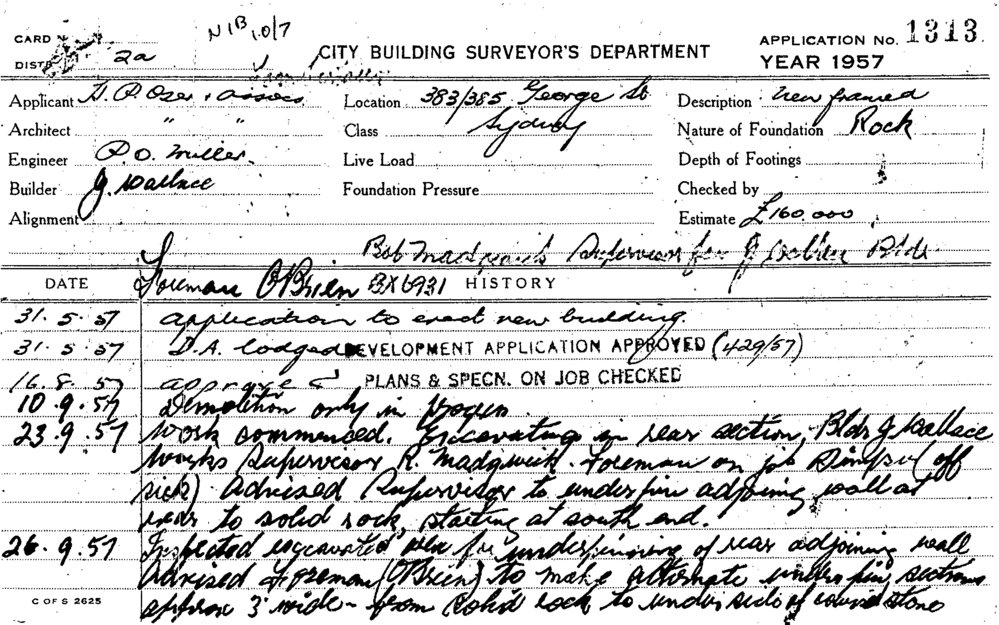 NIB 10/7
CARD
CITY BUILDING SURVEYOR'S DEPARTMENT
APPLICATION No. 1313
DIST. 2a
YEAR 1957
Applicant H. P. Oser & Assocs
Location 383/385 George St
Sydney
Description New framed
Architect " "
Class
Nature of Foundation Rock
Engineer P.O. Miller.
Live Load
Depth of Footings
Builder J. Wallace
Foundation Pressure
Checked by
Alignment
Estimate £160,000
Bob Madgwick Supervisor for J Wallace Bldr.
DATE Foreman O'Brien BX6931 HISTORY
31. 5. 57 Application to erect new building.
31. 5. 57 D.A. lodged DEVELOPMENT APPLICATION APPROVED (429/57)
16. 8. 57 PLANS & SPECN. ON JOB CHECKED
10. 9. 57 Demolition only in
23. 9. 57 Work commenced. Excavating in rear section, Bldr J Wallace
Works Supervisor R. Madgwick. Foreman on job (off
sick) Advised Supervisor to underpin adjoining wall at
rear to solid rock, starting at south end.
26. 9. 57 Inspected excavated for underpinning of rear adjoining wall
Advised Foreman (O'Brien) to make alternate underpinning sections
approx 3' wide - from solid rock to underside of stone
C OF S 2625